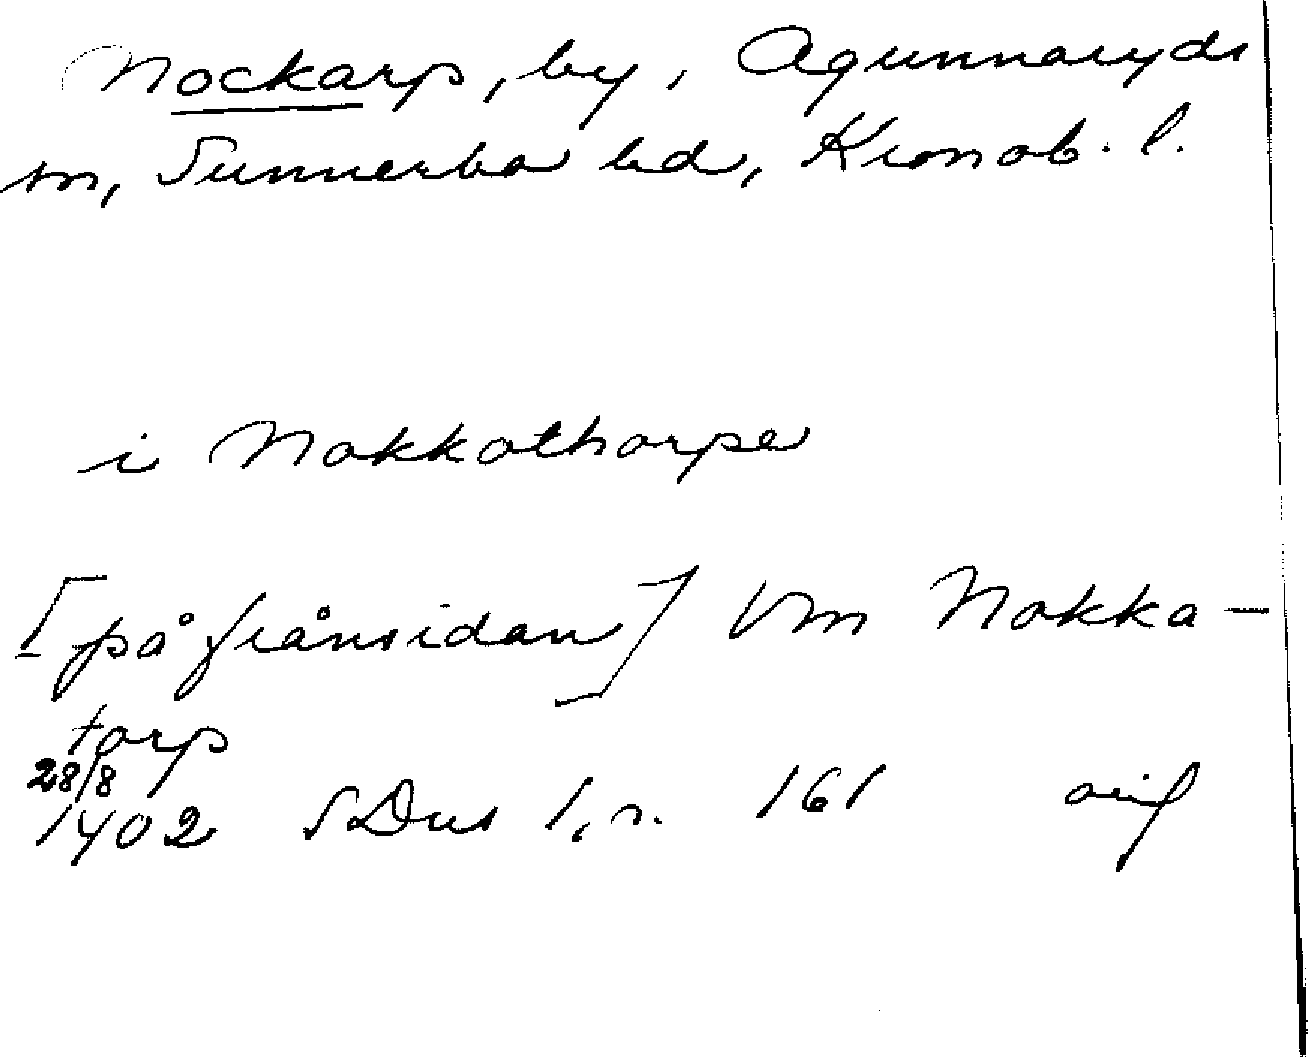 Nockarp, by, Agunnaryds
sn, Sunnerbo hd, Kronob. l.
i Nakkathorpe
[på frånsidan] Vm Nakka-
torp
28/8
1402 SDns 1, s. 161 orig